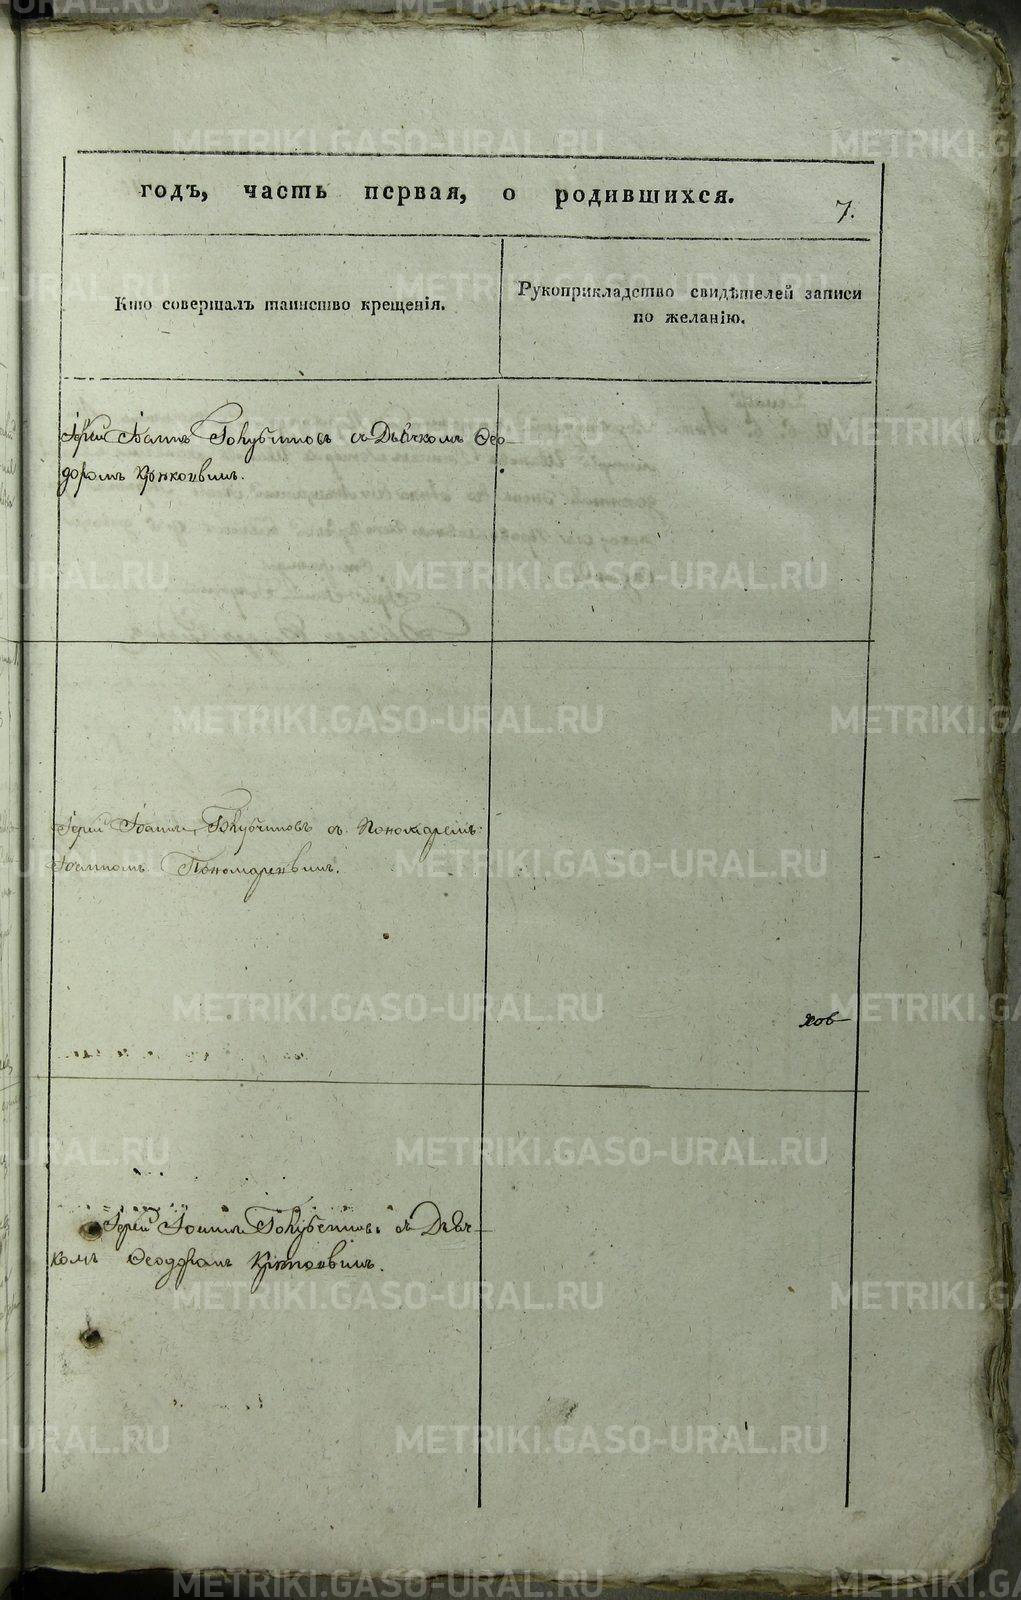 годъ, часть первая, о родившихся.
7.
Кто совершалъ таинство крещенія.
Рукоприкладство свидѣтелей записи
по желанію.
Іерей Іоаннъ Голубчиковъ съ Дьячкомъ Ѳео-
доромъ
Іерей Іоаннъ Голубчиковъ съ Пономаремъ
Іоанномъ Пономаревымъ.
хов
Іерей Іоаннъ Голубчиковъ съ Дьяч-
комъ Ѳеодоромъ
METRIKI.GASO-URAL.RU